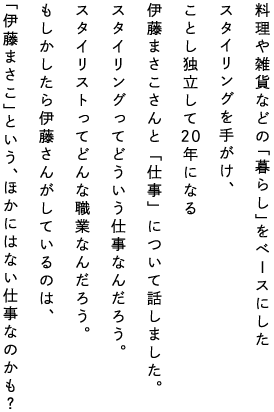 料理や雑貨などの「暮らし」をベースにした
スタイリングを手がけ、
ことし独立して20年になる
伊藤まさこさんと「仕事」について話しました。
スタイリングってどういう仕事なんだろう。
スタイリストってどんな職業なんだろう。
もしかしたら伊藤さんがしているのは、
「伊藤まさこ」という、ほかにはない仕事なのかも？